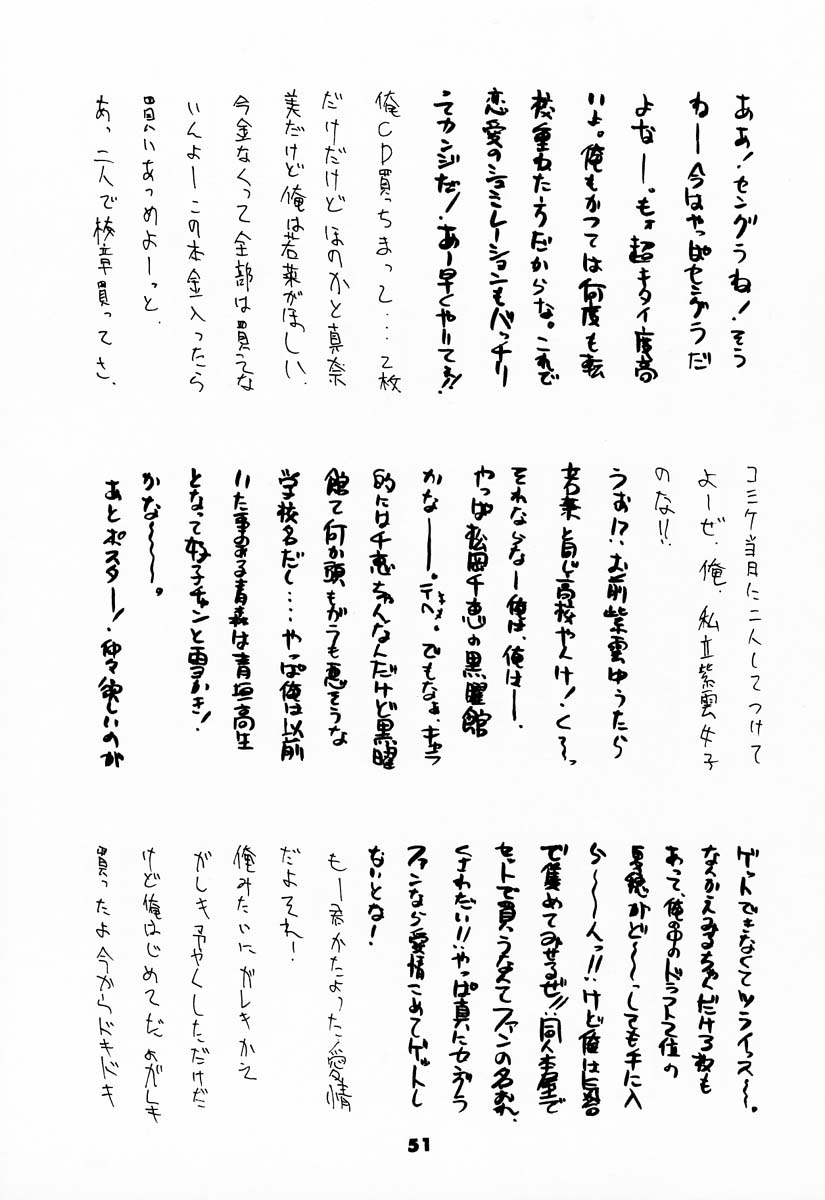 ああ！セングラね！そう
ねー今はやっぱセングラだ
よなー。もォ超キタイ度高
いよ。俺もかつては何度も転
校重ねた方だからな。これで
恋愛のシュミレーションもバッチリ
てカンジだ！あー早くやりてえ！
俺CD買っちまって…2枚
だけだけど ほのかと真奈
美だけど俺は若菜がほしい、
今金なくって全部は買えな
いんよーこの本金入ったら
買いあつめよーっと、
あっ、二人で校章買ってさ、
コミケ当日に二人してつけて
よーぜ、俺、私立紫雲女子
のな!!
うお!?お前紫雲ゆうたら
若菜と同じ高校やんけ！くーっ
それならなー俺は、俺はー、
やっぱ松岡千恵の黒曜館
かなーー。テヘ。でもなぁ、キャラ
的には千恵ちゃんなんだけど黒曜
館て何か頭もがらも悪そうな
学校名だし…やっぱ俺は以前
いた事のある青森は青垣高生
となって妙子チャンと雪かき！
かな〜〜〜。
あとポスター！仲々欲しいのが
ゲットできなくてツライっス〜〜。
なんかえみるちゃんだけ3枚も
あって、俺の中のドラフト2位の
夏穂がど〜〜っしても手に入
ら〜〜〜んっ!!けど俺は自分
で集めてみせるぜ!!同人本屋で
セットで買うなんてファンの名おれ、
くさわたい!!やっぱ真にセングラ
ファンなら愛情こめてゲットし
ないとな！
もー君かたよった愛情
だよそれー！
俺みたいにガレキかえ
ガレキ予やくしただけだ
けど俺はじめてだよガレキ
買ったよ今からドキドキ
51